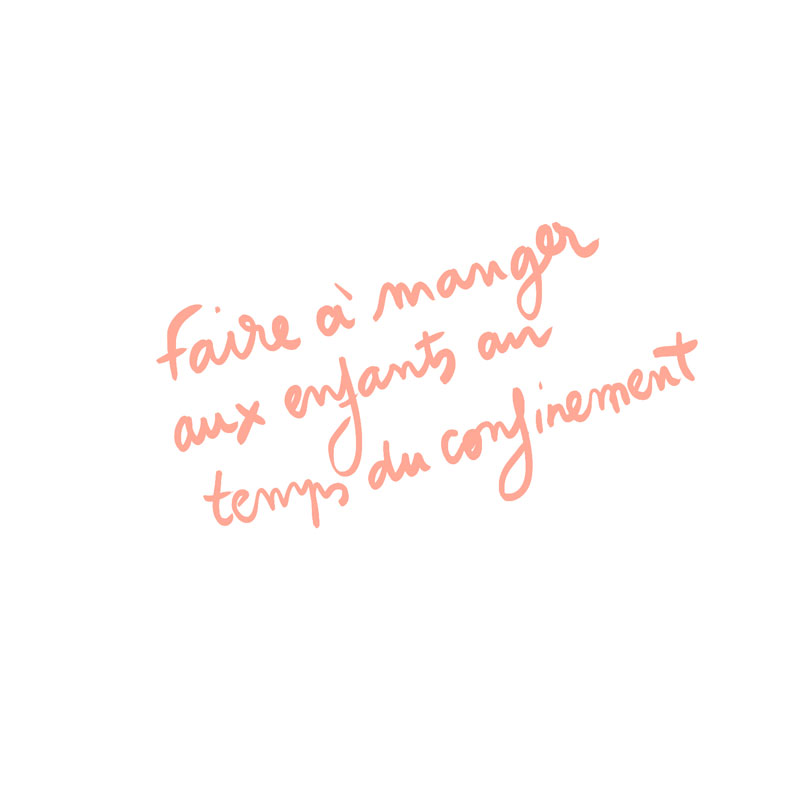 faire à manger
aux enfants au
temps du confinement